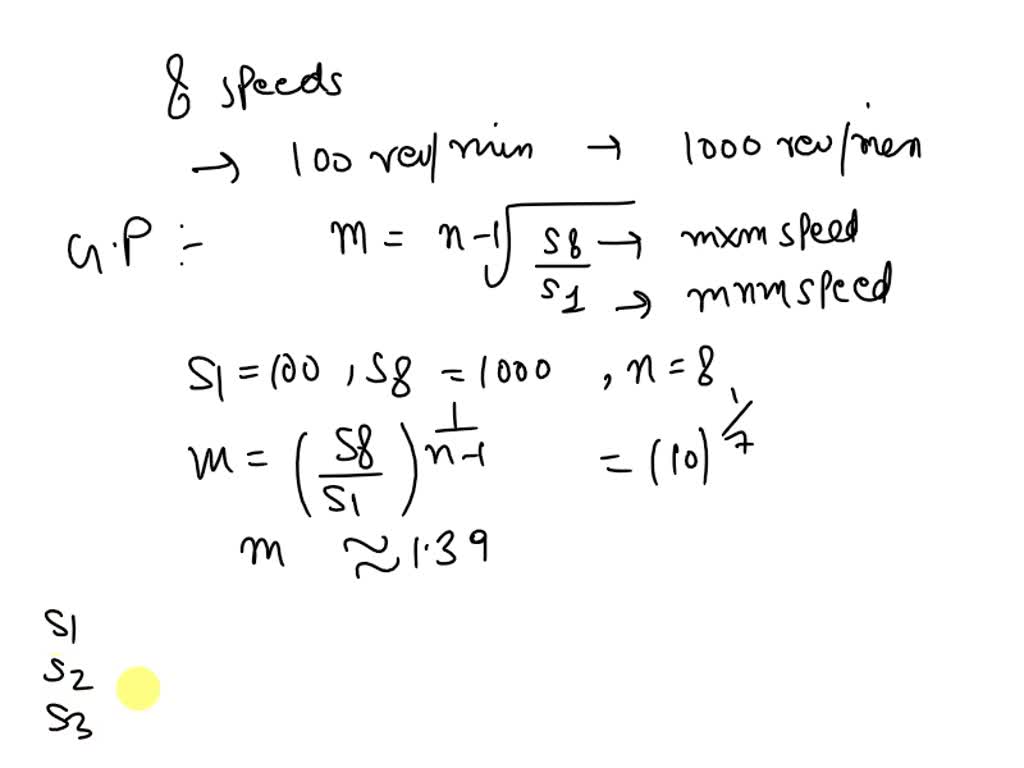 8 speeds
→ 100 rev/min → 1000 rev/men
G.P :- m = n-1√(S8/S1) → mxm speed
→ mnm speed
S1 = 100 , S8 = 1000 , n = 8
m = (S8/S1)^(1/(n-1)) = (10)^(1/7)
m ≈ 1.39
S1
S2
S3